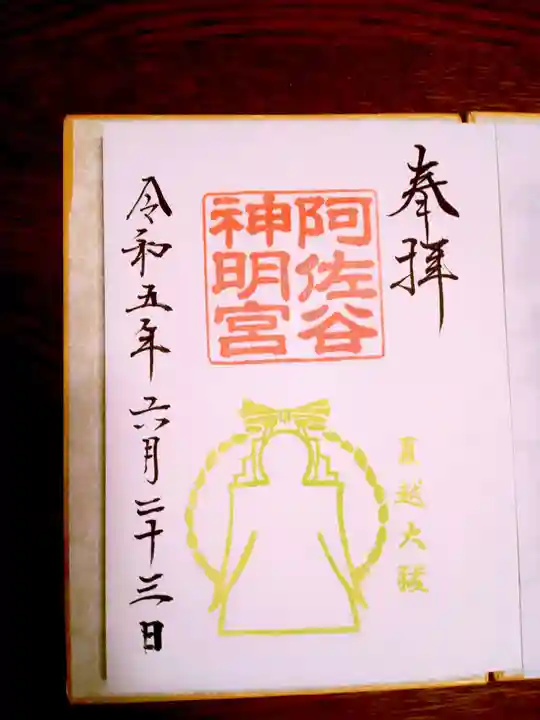 奉拝
阿佐谷
神明宮
夏越大祓
令和五年六月二十三日